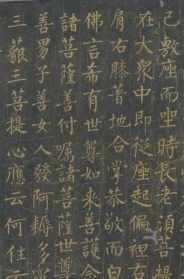 已敷座而坐時長老須菩提
在大衆中即從座起偏袒右
肩右膝著地合掌恭敬而白
佛言希有世尊如來善護念
諸菩薩善付嘱諸菩薩世尊
善男子善女人發阿耨多羅
三藐三菩提心應云何住云